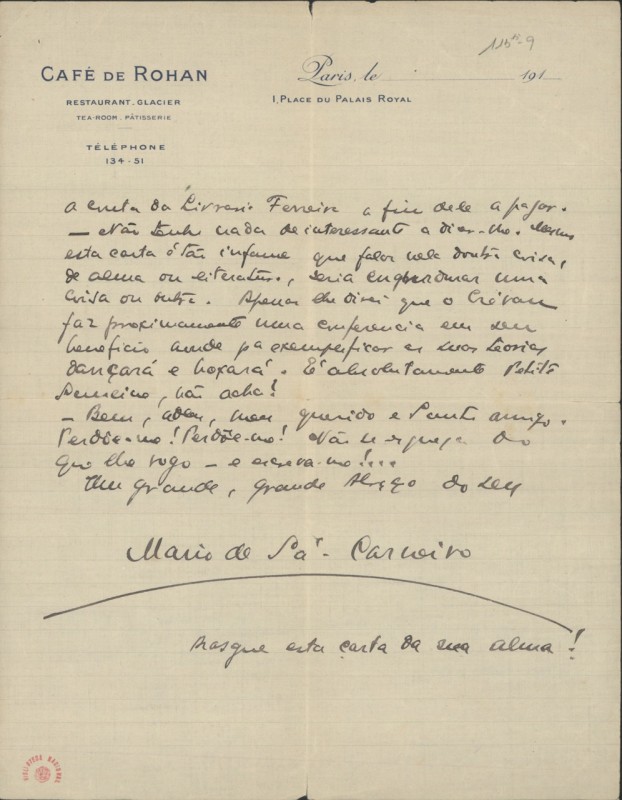 115⁵-9
CAFÉ DE ROHAN
RESTAURANT. GLACIER
TEA-ROOM. PÂTISSERIE
TÉLÉPHONE
134-51
Paris, le 191
1, PLACE DU PALAIS ROYAL
a conta da Livraria Ferreira a fim dele a pagar.
— Não tenho nada de interessante a dizer-lhe. Mesmo
esta carta é tão infame que falar nela doutra coisa,
de alma ou literatura, seria engordurar uma
coisa ou outra. Apenas lhe direi que o Crávan
faz proximamente uma conferencia em seu
beneficio aonde pa exemplificar as suas teorias
dançará e boxará. É absolutamente Petit
Semeiro, não acha?
— Bem, adeus, meu querido e Santo amigo.
Perdôe-me! Perdôe-me! Não se esqueça do
que lhe rogo — e escreva-me!...
Um grande, grande Abraço do seu
Mario de Sá-Carneiro
Rasgue esta carta da sua alma!
BIBLIOTECA NACIONAL